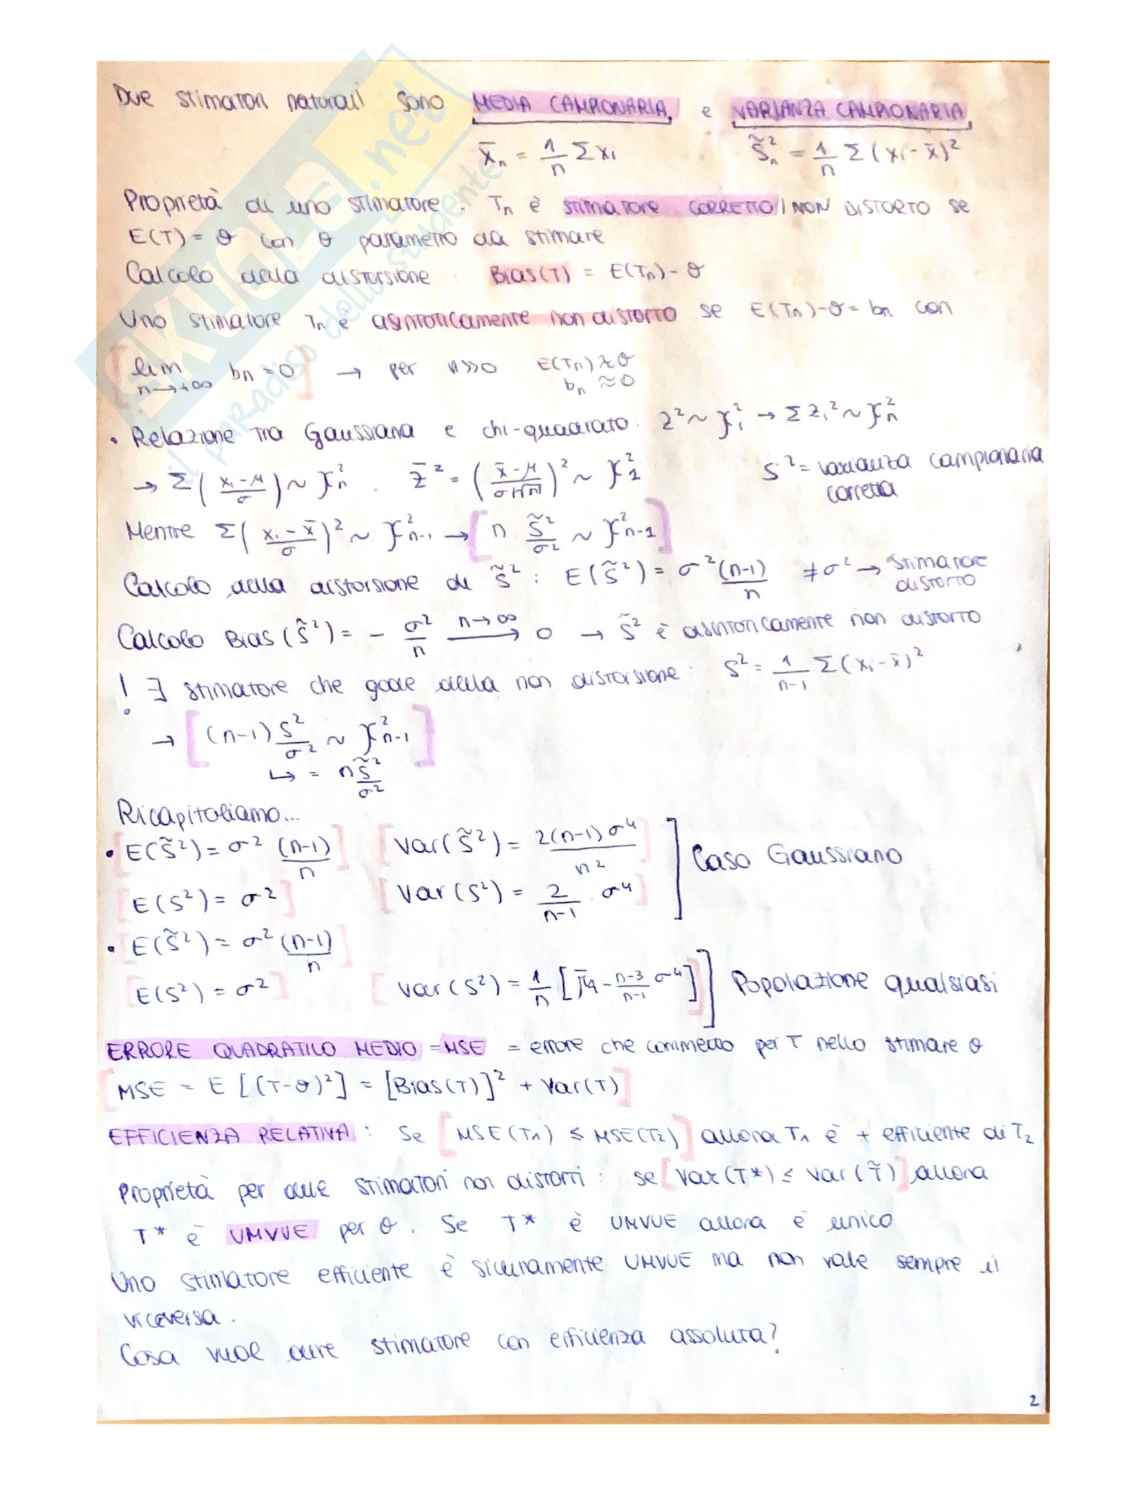 Due stimatori naturali sono MEDIA CAMPIONARIA e VARIANZA CAMPIONARIA
X̄n = 1/n Σ xi    S̃²n = 1/n Σ (xi - x̄)²
Proprietà di uno stimatore. Tn è stimatore CORRETTO / NON DISTORTO se
E(T) = θ con θ parametro da stimare
Calcolo della distorsione : Bias(T) = E(Tn) - θ
Uno stimatore Tn è asintoticamente non distorto se E(Tn) - θ = bn con
lim n→+∞ bn = 0 → per n>>0 E(Tn) ≈ θ
bn ≈ 0
• Relazione tra Gaussiana e chi-quadrato. Z² ~ χ²1 → Σ Zi² ~ χ²n
→ Σ ( (xi - μ)/σ ) ~ χ²n . Z̄² = ( (x̄ - μ)/(σ/√n) )² ~ χ²1    S² = varianza campionaria
corretta
Mentre Σ ( (xi - x̄)/σ )² ~ χ²n-1 → [ n S̃²/σ² ~ χ²n-1 ]
Calcolo della distorsione di S̃² : E(S̃²) = σ² (n-1)/n ≠ σ² → stimatore
distorto
Calcolo Bias(S̃²) = - σ²/n n→∞ → 0 → S̃² è asintoticamente non distorto
! ∃ stimatore che gode della non distorsione : S² = 1/(n-1) Σ (xi - x̄)²
→ [ (n-1) S²/σ² ~ χ²n-1 ]
↳ = n S̃²/σ²
Ricapitoliamo...
• [ E(S̃²) = σ² (n-1)/n ] [ Var(S̃²) = 2(n-1)σ⁴/n² ]
Caso Gaussiano
[ E(S²) = σ² ] [ Var(S²) = 2/(n-1) · σ⁴ ]
• [ E(S̃²) = σ² (n-1)/n ]
[ E(S²) = σ² ] [ Var(S²) = 1/n [ μ̄4 - (n-3)/(n-1) σ⁴ ] ] Popolazione qualsiasi
ERRORE QUADRATICO MEDIO = MSE = errore che commetto per T nello stimare θ
[ MSE = E [(T-θ)²] = [Bias(T)]² + Var(T) ]
EFFICIENZA RELATIVA : Se [ MSE(T1) ≤ MSE(T2) ] allora T1 è + efficiente di T2
Proprietà per due stimatori non distorti : se [ Var(T*) ≤ Var(T̃) ] allora
T* è UMVUE per θ . Se T* è UMVUE allora è unico
Uno stimatore efficiente è sicuramente UMVUE ma non vale sempre il
viceversa.
Cosa vuol dire stimatore con efficienza assoluta?
2
SKUOLA.net
il paradiso dello studente